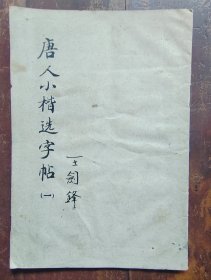 唐人小楷选字帖(一)
王剑锋